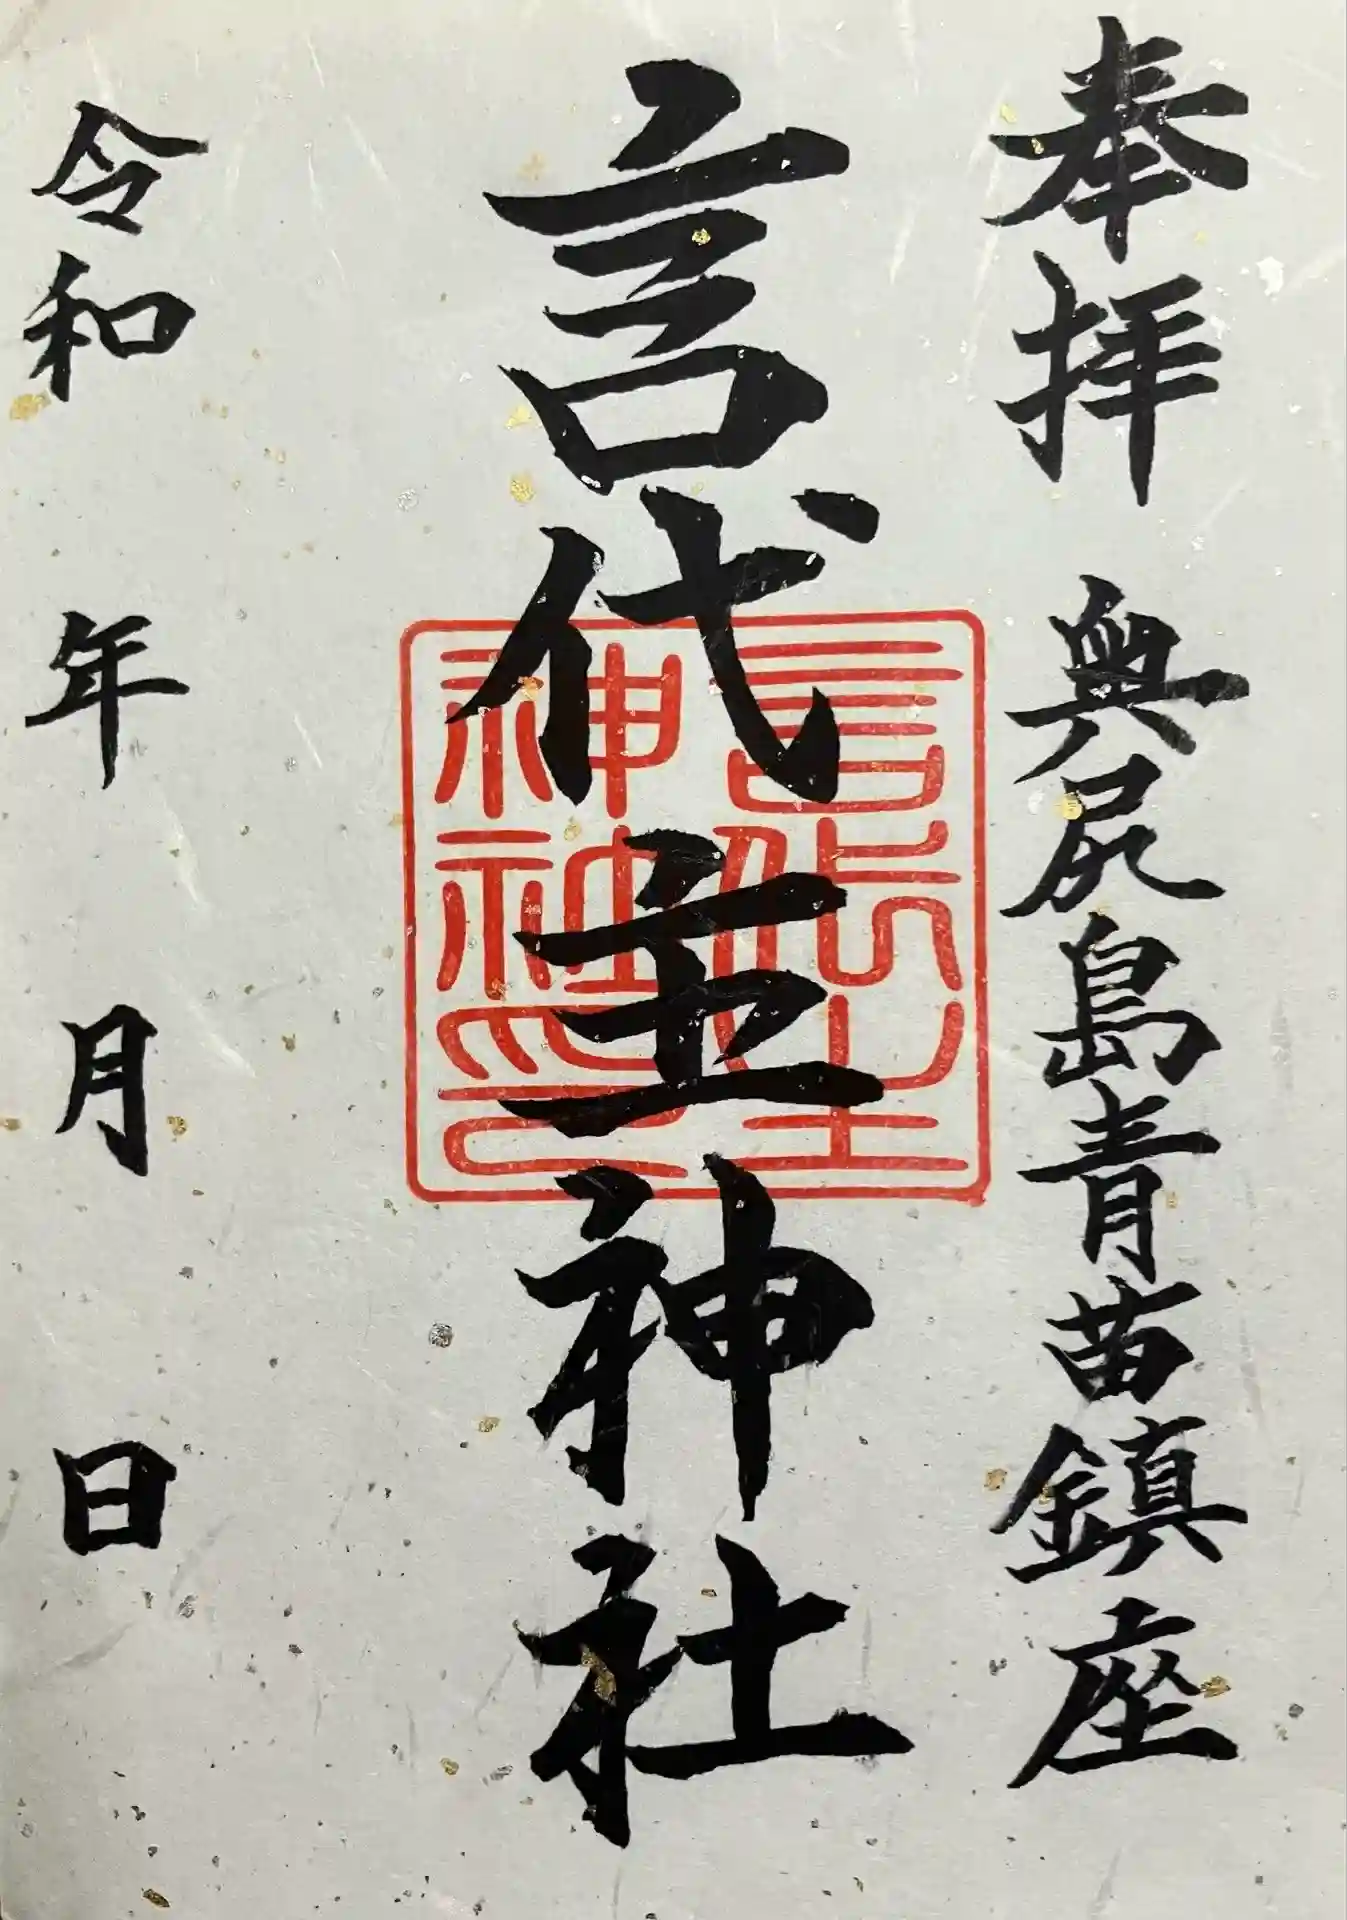 奉拝 奥尻島青苗鎮座
言代主神社
言代主
神社
神印
令和 年 月 日